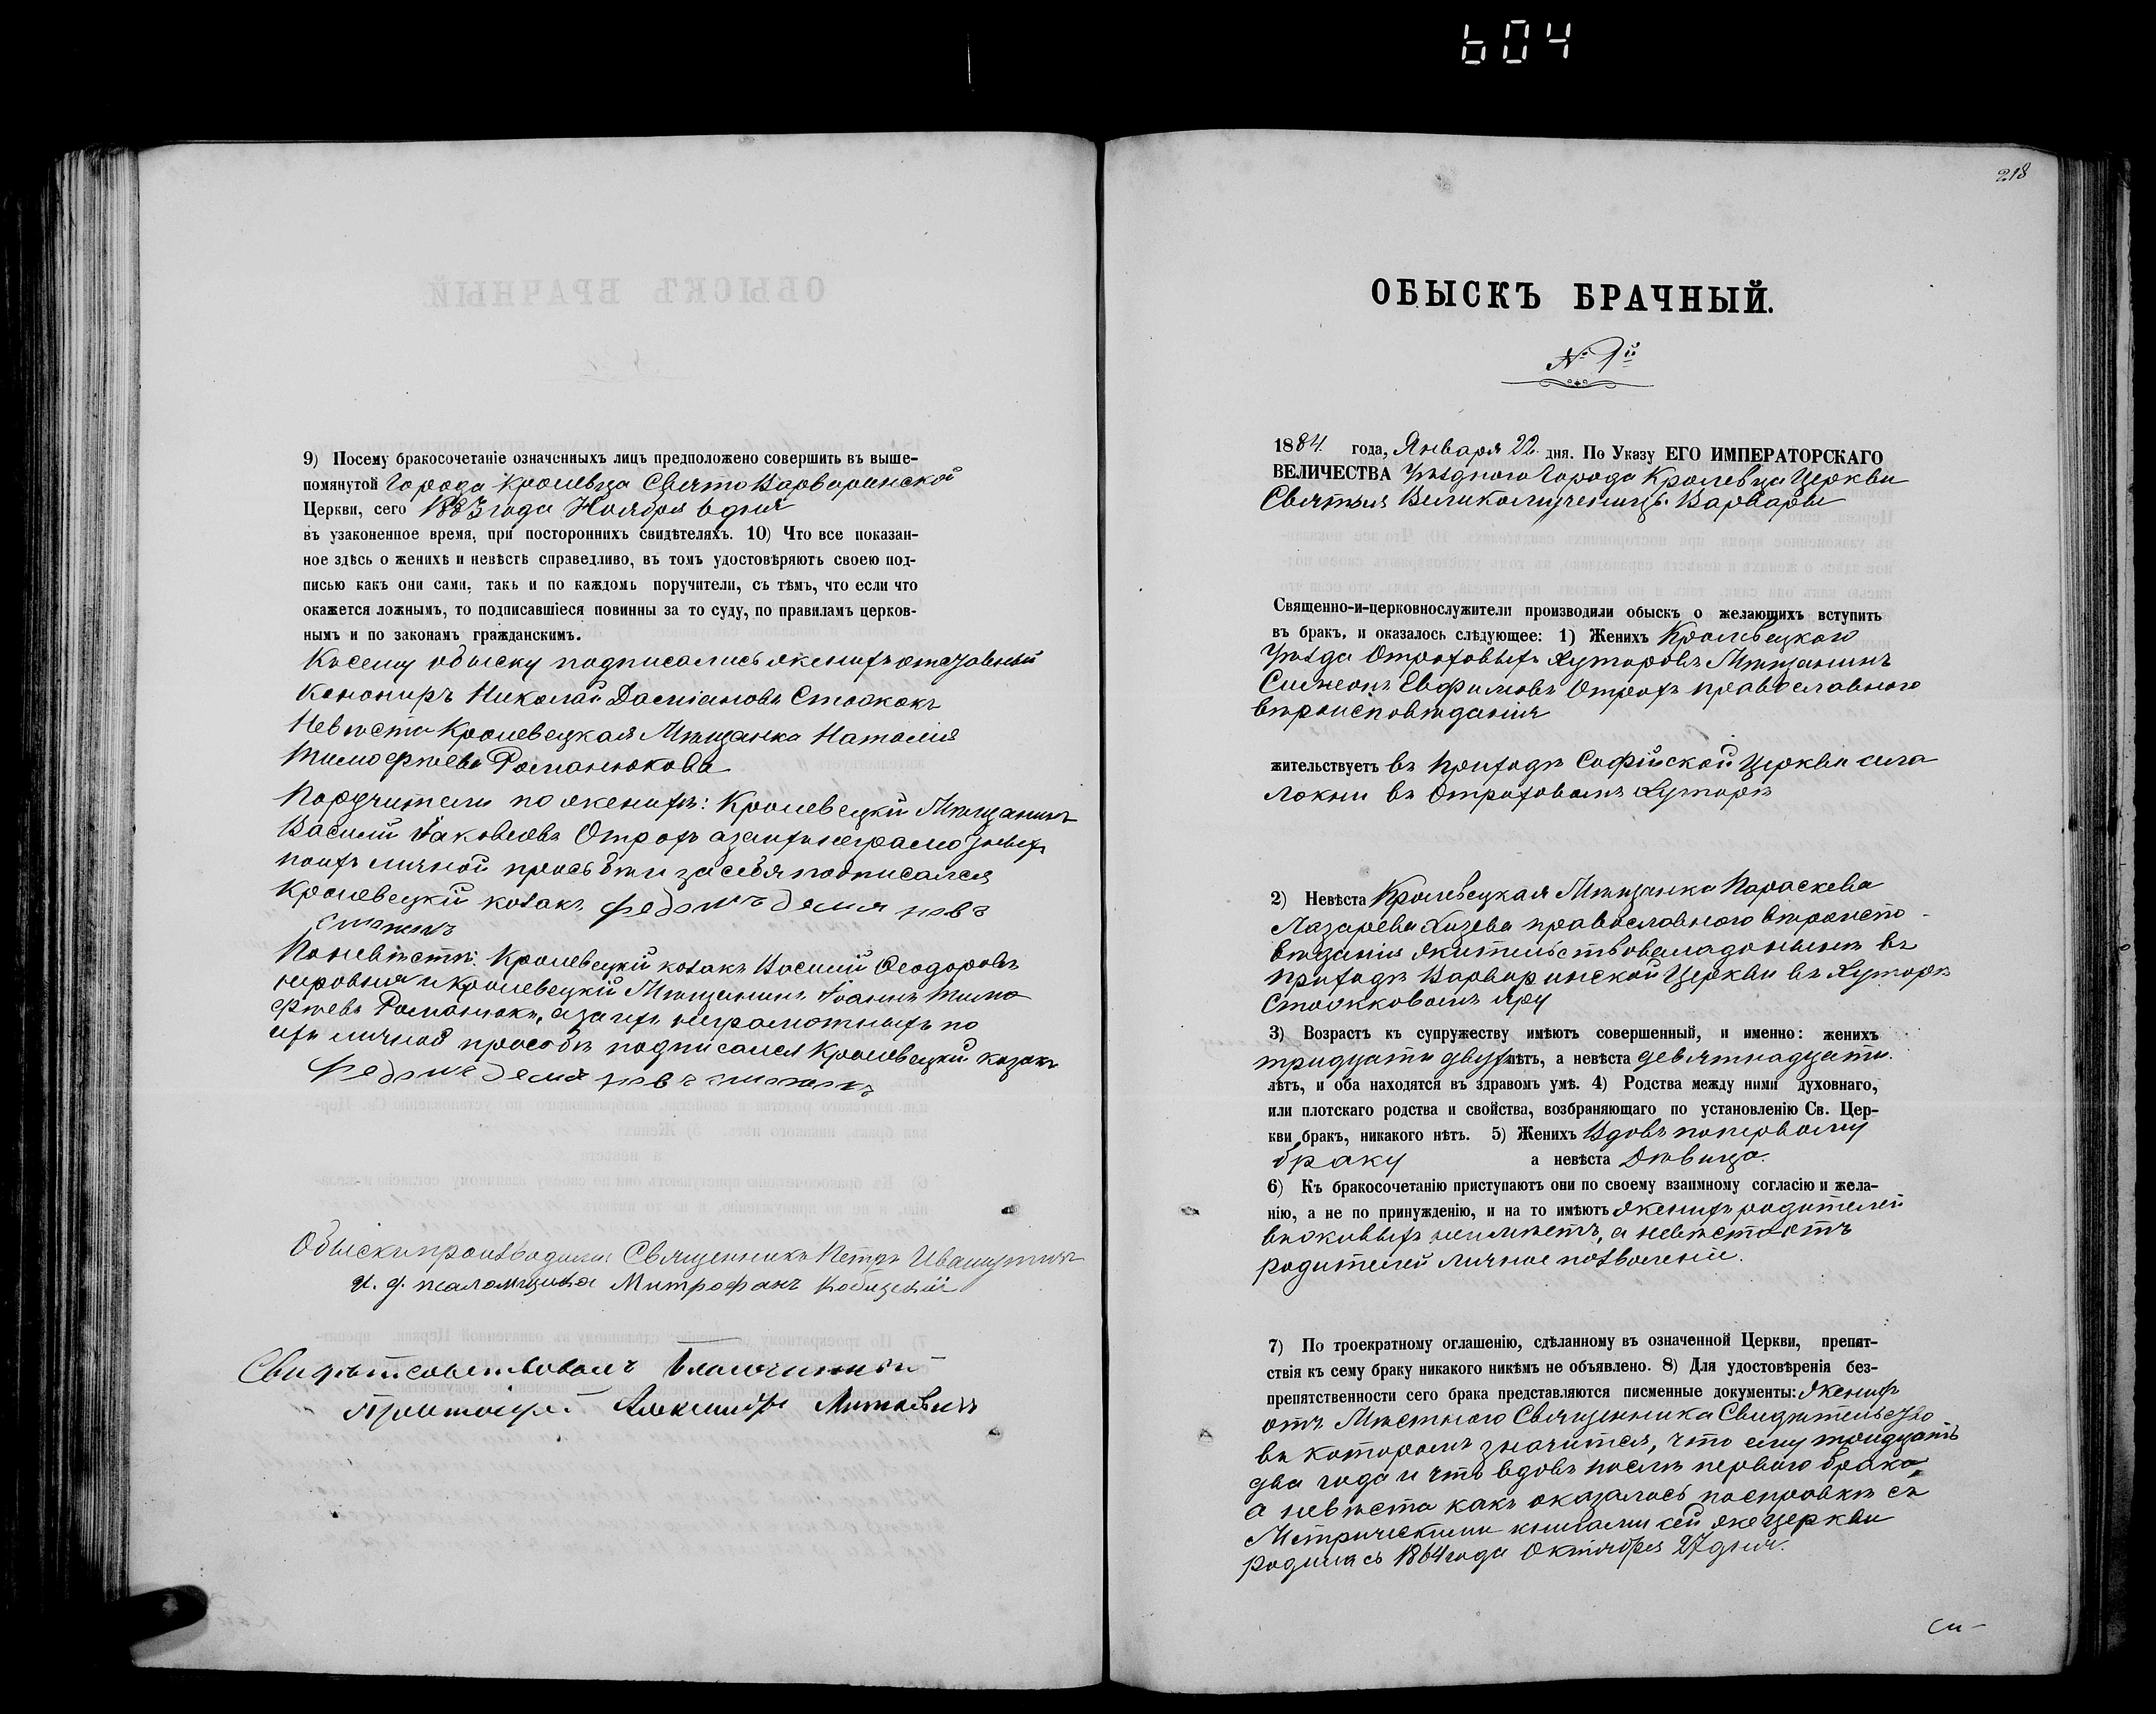 604
9) Посему бракосочетаніе означенныхъ лицъ предположено совершить въ выше-
помянутой Города Кролевца Свято Варваринской
Церкви, сего 1883 года Ноября 6 дня
въ узаконенное время, при постороннихъ свидѣтеляхъ. 10) Что все показан-
ное здѣсь о женихѣ и невѣстѣ справедливо, въ томъ удостовѣряютъ своею под-
писью какъ они сами, такъ и по каждомъ поручители, съ тѣмъ, что если что
окажется ложнымъ, то подписавшіеся повинны за то суду, по правиламъ церков-
нымъ и по законамъ гражданскимъ.
Къ сему обыску подписались женихъ отставный
Канониръ Николай Даміановъ Стожокъ
Невѣста Кролевецкая Мѣщанка Наталія
Тимофѣева Романюкова
Поручители по женихѣ: Кролевецкій Мѣщанинъ
Василій Яковлевъ Отрохъ а за ихъ неграмотныхъ
по ихъ личной прозьбѣ и за себя подписался
Кролевецкій козакъ Федотъ Демяновъ
Стожокъ
По невѣстѣ: Кролевецкій козакъ Василій Ѳеодоровъ
и Кролевецкій Мѣщанинъ Іоаннъ Тимо
фѣевъ Романюкъ, а за ихъ неграмотныхъ по
ихъ личной просьбѣ подписался Кролевецкій казакъ
Федотъ Демяновъ Стожокъ
Обыскъ производили Священникъ Петръ Ивашутичъ
И. д. псаломщика Митрофанъ Кобищскій
Свидѣтельствовалъ Благочинный
Протоіерей Александръ Миткевичъ
218
ОБЫСКЪ БРАЧНЫЙ.
№ 1й
1884 года, Января 22 дня. По Указу ЕГО ИМПЕРАТОРСКАГО
ВЕЛИЧЕСТВА Уѣзднаго Города Кролевца Церкви
Святыя Великомученицы Варвары
Священно-и-церковнослужители производили обыскъ о желающихъ вступить
въ бракъ, и оказалось слѣдующее: 1) Женихъ Кролевецкаго
Уѣзда Отроховыхъ Хуторовъ Мѣщанинъ
Симеонъ Евфимовъ Отрохъ православного
вѣроисповѣданія
жительствуетъ въ приходѣ Софійской Церкви села
Локни въ Отроховомъ Хуторѣ
2) Невѣста Кролевецкая Мѣщанка Параскева
Лазарева православного вѣроиспо-
вѣданія жительствовала донынѣ въ
приходѣ Варваринской Церкви въ Хуторѣ
Стожковомъ Яру
3) Возрастъ къ супружеству имѣютъ совершенный, и именно: женихъ
тридцати двухъ лѣтъ, а невѣста девятнадцати
лѣтъ, и оба находятся въ здравомъ умѣ. 4) Родства между ними духовнаго,
или плотскаго родства и свойства, возбраняющаго по установленію Св. Цер-
кви бракъ, никакого нѣтъ. 5) Женихъ Вдовъ по первому
браку а невѣста Дѣвица.
6) Къ бракосочетанію приступаютъ они по своему взаимному согласію и жела-
нію, а не по принужденію, и на то имѣютъ женихъ родителей
въ живыхъ неимѣетъ, а невѣста отъ
родителей личное позволеніе.
7) По троекратному оглашенію, сдѣланному въ означенной Церкви, препят-
ствія къ сему браку никакого никѣмъ не объявлено. 8) Для удостовѣренія без-
препятственности сего брака представляются писменные документы: женихъ
отъ Мѣстнаго Священника Свидѣтельство
въ которомъ значится, что ему тридцать
два года и что вдовъ послѣ перваго брака,
а невѣста какъ оказалось по справкѣ съ
Метрическими книгами сей же церкви
родилась 1864 года Октября 27 дня.